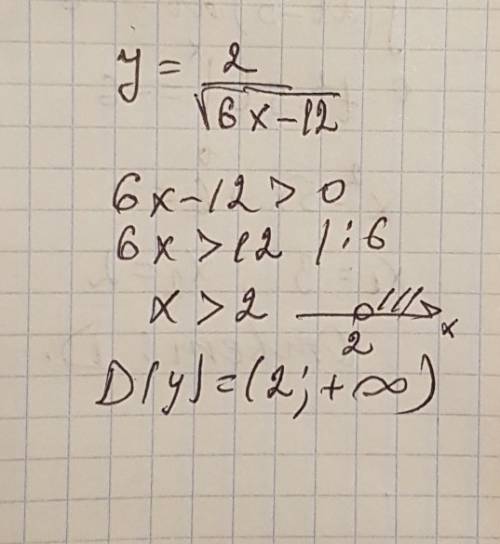 y = 2 / √(6x-12)
6x-12 > 0
6x > 12 | : 6
x > 2 2 x
D(y) = (2; +∞)